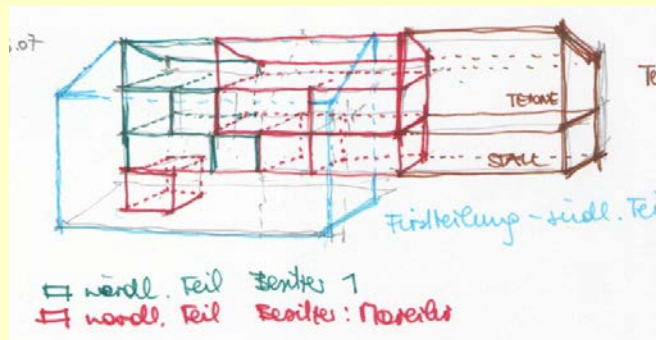 .07
Te
TENNE
STALL
Firstteilung - südl. Teil
nördl. Teil Besitzer 1
nördl. Teil Besitzer: